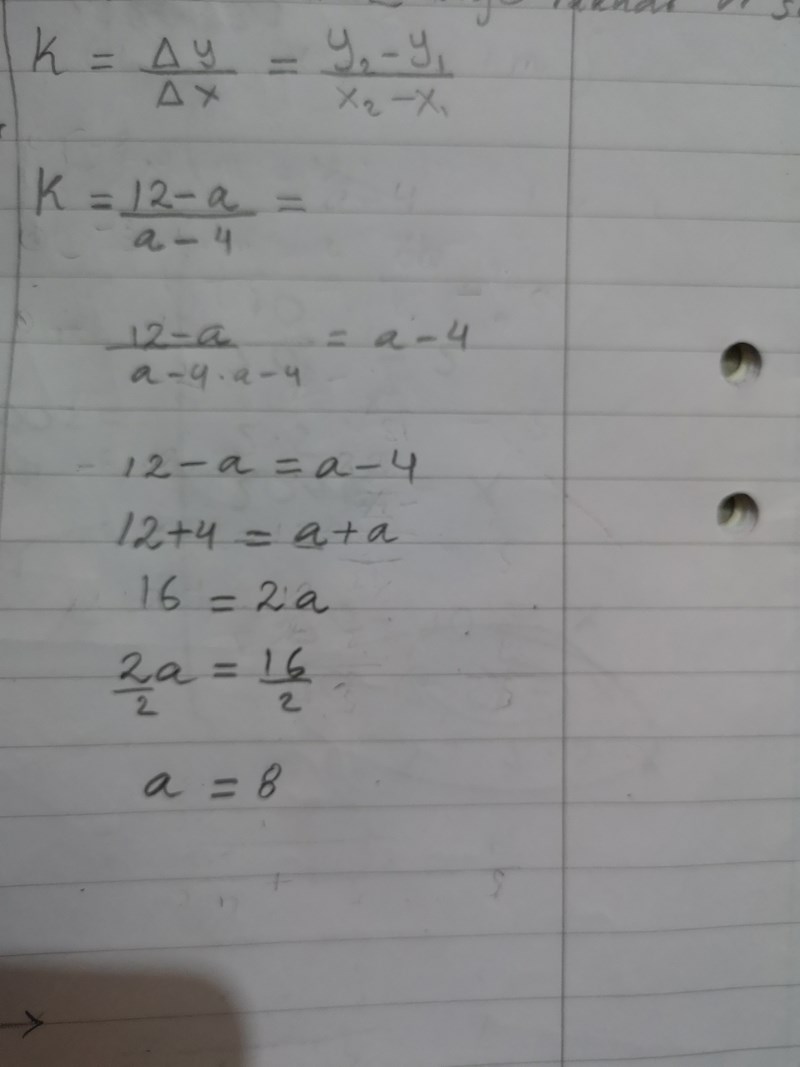 K = Δy/Δx = y₂-y₁/x₂-x₁
K = 12-a/a-4 =
12-a/a-4·a-4 = a-4
12-a = a-4
12+4 = a+a
16 = 2a
2a/2 = 16/2
a = 8
→